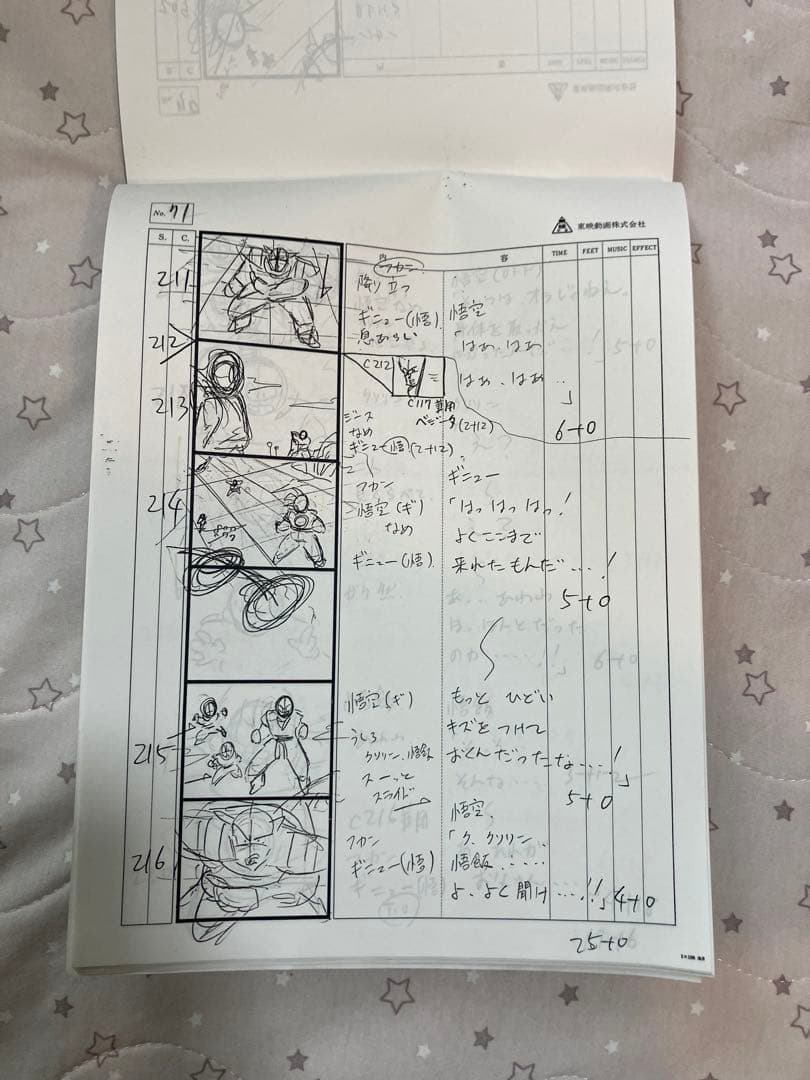 No. 71
東映動画株式会社
S. C. 内容 TIME FEET MUSIC EFFECT
211
フカン
降り立つ
ギニュー(悟)
息あらい
悟空
「はぁ、はぁ
はぁ、はぁ‥
」
6+0
212
C212
C117兼用
ベジータ(2+12)
213
ジース
なめ
ギニュー(悟)(2+12)
214
フカン
悟空(ギ)
なめ
ギニュー(悟)
ギニュー
「はっはっはっ!
よくここまで
来れたもんだ…!
5+0
215
悟空(ギ)
うしろ
クリリン、悟飯
スーッと
スライド
もっとひどい
キズをつけて
おくんだったな…!」
5+0
216
フカン
ギニュー(悟)
悟空
「ク、クリリン‥
悟飯‥‥‥
よ、よく聞け…!!」4+0
25+0